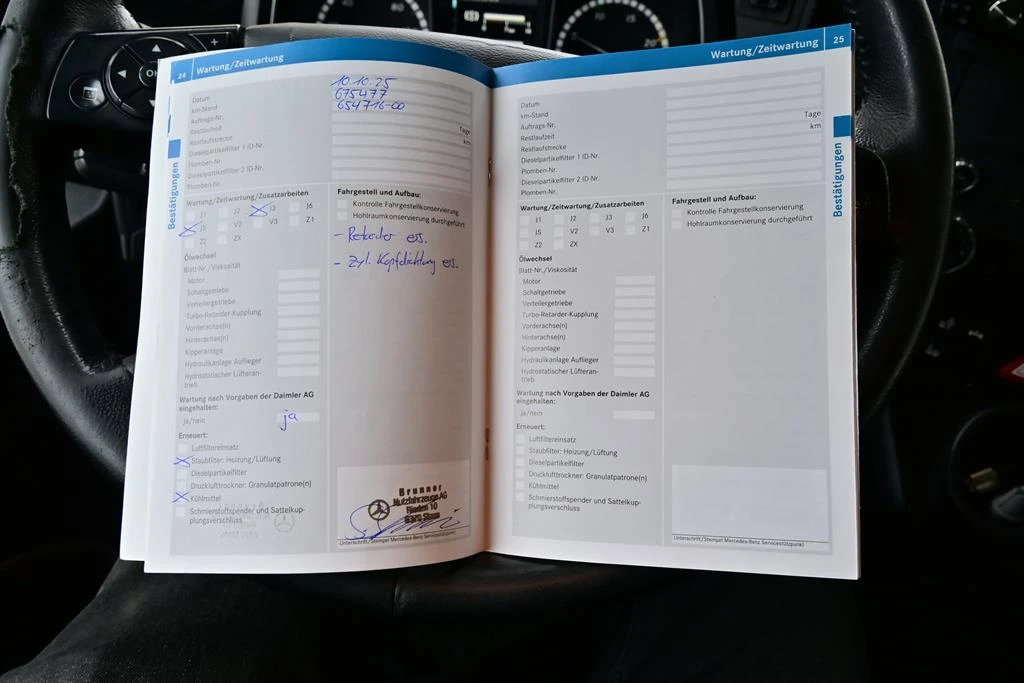 24 Wartung/Zeitwartung
Datum 10.10.25
km-Stand 675477
Auftrags-Nr. 654716-00
Restlaufzeit Tage
Restlaufstrecke km
Dieselpartikelfilter 1 ID-Nr.
Plomben-Nr.
Dieselpartikelfilter 2 ID-Nr.
Plomben-Nr.
Bestätigungen
Wartung/Zeitwartung/Zusatzarbeiten
J1 J2 J3 J6
J5 V2 V3 Z1
Z2 ZX
Ölwechsel
Blatt-Nr./Viskosität
Motor
Schaltgetriebe
Verteilergetriebe
Turbo-Retarder-Kupplung
Vorderachse(n)
Hinterachse(n)
Kipperanlage
Hydraulikanlage Auflieger
Hydrostatischer Lüfteran-
trieb
Wartung nach Vorgaben der Daimler AG
eingehalten:
ja/nein ja
Erneuert:
Luftfiltereinsatz
Staubfilter: Heizung/Lüftung
Dieselpartikelfilter
Drucklufttrockner: Granulatpatrone(n)
Kühlmittel
Schmierstoffspender und Sattelkup-
plungsverschluss
Fahrgestell und Aufbau:
Kontrolle Fahrgestellkonservierung
Hohlraumkonservierung durchgeführt
- Retarder ers.
- Zyl. Kopfdichtung ers.
Brunner
Nutzfahrzeuge AG
Unterschrift/Stempel Mercedes-Benz Servicestützpunkt
Wartung/Zeitwartung 25
Datum
km-Stand
Auftrags-Nr.
Restlaufzeit Tage
Restlaufstrecke km
Dieselpartikelfilter 1 ID-Nr.
Plomben-Nr.
Dieselpartikelfilter 2 ID-Nr.
Plomben-Nr.
Bestätigungen
Wartung/Zeitwartung/Zusatzarbeiten
J1 J2 J3 J6
J5 V2 V3 Z1
Z2 ZX
Ölwechsel
Blatt-Nr./Viskosität
Motor
Schaltgetriebe
Verteilergetriebe
Turbo-Retarder-Kupplung
Vorderachse(n)
Hinterachse(n)
Kipperanlage
Hydraulikanlage Auflieger
Hydrostatischer Lüfteran-
trieb
Wartung nach Vorgaben der Daimler AG
eingehalten:
ja/nein
Erneuert:
Luftfiltereinsatz
Staubfilter: Heizung/Lüftung
Dieselpartikelfilter
Drucklufttrockner: Granulatpatrone(n)
Kühlmittel
Schmierstoffspender und Sattelkup-
plungsverschluss
Fahrgestell und Aufbau:
Kontrolle Fahrgestellkonservierung
Hohlraumkonservierung durchgeführt
Unterschrift/Stempel Mercedes-Benz Servicestützpunkt